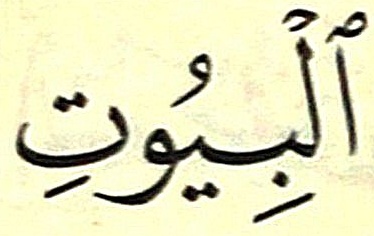 ٱلْبِيُوتِ